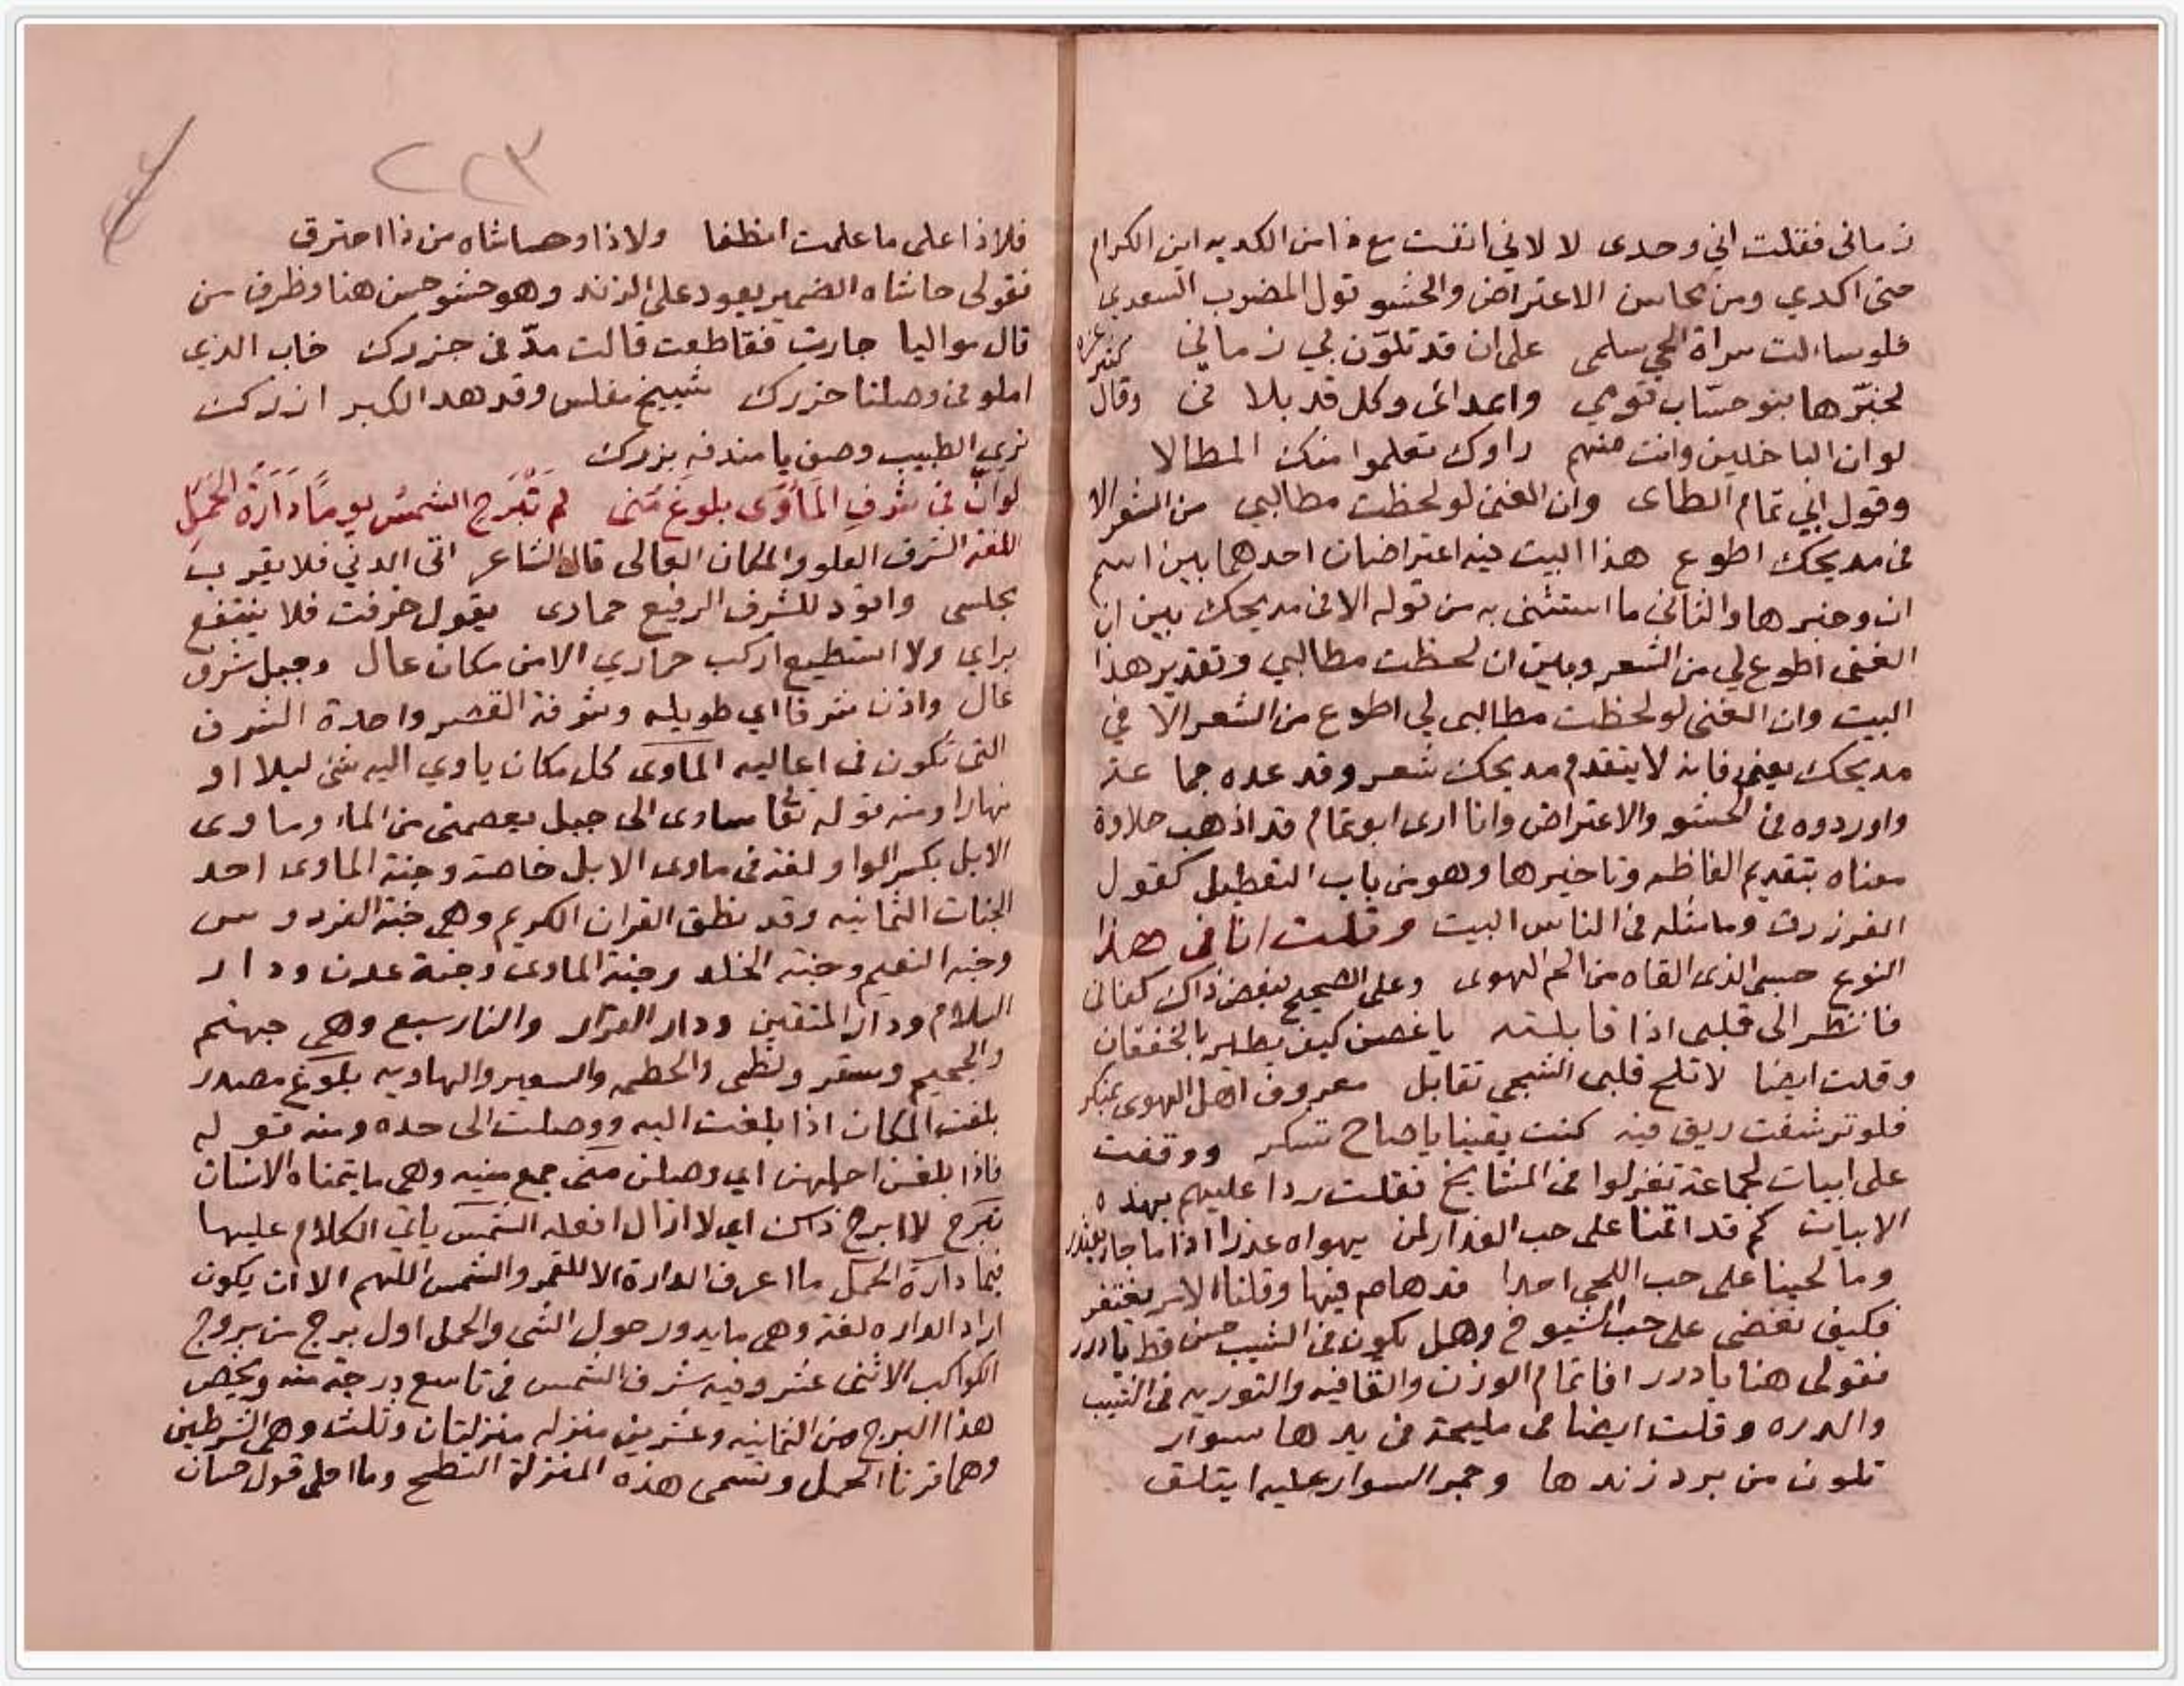 زمانى فقلت اني وحدى لا لاني انفت مع ذا من الكديه اين الكرام
حتى اكدي ومن محاسن الاعتراض والحشو قول المضرب السعدي
فلو سالت سراة الحي سلمى على ان قد تلوّن بي زماني كثير عزه
لخبّرها بنو حسّاب قومي واعدائى وكل قد بلا نى وقال
لو ان الباخلين وانت منهم راوك تعلموا منك المطالا
وقول ابي تمام الطاى وان الغنى لو لحظت مطالبي من الشعر الا
فى مديحك اطوع هذا البيت فيه اعتراضان احدهما بين اسم
ان وخبرها والثانى ما استثنى به من قوله الا فى مديحك بين ان
الغنى اطوع لي من الشعر وبين ان لحظت مطالبي وتقدير هذا
البيت وان الغنى لو لحظت مطالبى لي اطوع من الشعر الّا في
مديحك يعنى فانه لا يتقدم مديحك شعر وقد عده جماعة
واوردوه فى الحشو والاعتراض وانا ارى ابو تمام قد اذهب حلاوة
معناه بتقديم الفاظه وتاخيرها وهو من باب التعطيل كقول
الفرزدق وما مثله فى الناس البيت وقلت انا فى هذا
النوع حسبى الذى القاه من الم الهوى وعلى الصحيح بغض ذاك كفانى
فانظر الى قلبى اذا قابلته يا غصن كيف يطير بالخفقان
وقلت ايضا لا تلح قلبى الشجى تقابل معروف اهل الهوى بمنكر
فلو ترشفت ريق فيه كنت يقينا يا صاح تسكر ووقفت
على ابيات لجماعة تغزلوا فى المشايخ فقلت ردا عليهم بهذه
الابيات كم قد اقمنا على حب العذار لمن يهواه عذرا اذا ما جار يعتذر
وما لحينا على حب اللحى احدا قد هام فيها وقلنا الامر يغتفر
فكيف نغضى على حب الشيوخ وهل يكون فى الشيب حسن قط يا درر
فقولى هنا يا درر افا تمام الوزن والقافيه والتوريه فى الشيب
والدره وقلت ايضا فى مليحة فى يدها سوار
تلون من برد زندها وجمر السوار عليه ايتلق
٢٢٣
فلا ذا على ما علمت انطفا ولا ذا وحاشاه من ذا احترق
فقولى حاشاه الضمير يعود على الزند وهو حشو حسن هنا وظرف من
قال مواليا جارت فقاطعت قالت مدّ فى جزرك خاب الذى
املو فى وصلنا حزرك شييخ مفلس وقد هد الكبر ازرك
ترى الطبيب وصف يا مندفه بزرك
لو انّ في شرف المأوى بلوغ منى لم تبرح الشمس يوما دارة الحمل
اللغه الشرف العلو والمكان العالى قال الشاعر اتى الدني فلا يقرب
مجلسى واقود للشرف الرفيع حمارى يقول خرفت فلا ينتفع
براي ولا استطيع اركب حماري الا من مكان عال وجبل شرف
عال واذن شرفا اي طويله وشرفة القصر واحدة الشرف
التى تكون فى اعاليه المأوى كل مكان ياوي اليه شى ليلا او
نهارا ومنه قوله تعا ساوى الى جبل يعصمنى من الماء وماوى
الابل بكسر الواو لغة فى ماوى الابل خاصة وجنة الماوى احد
الجنات الثمانيه وقد نطق القران الكريم وهي جنة الفردوس
وجنه النعيم وجنة الخلد وجنة الماوى وجنة عدن ودار
السلام ودار المتقين ودار القرار والنار سبع وهى جهنم
والجحيم وسقر ولظى والحطمه والسعير والهاويه بلوغ مصدر
بلغت المكان اذا بلغت اليه ووصلت الى حده ومنه قوله
فاذا بلغن اجلهن اي وصلن منى جمع منيه وهي ما يتمناه الانسان
تبرح لا ابرح ذاك اي لا ازال افعله الشمس ياتي الكلام عليها
فيما دارة الحمل ما اعرف الدارة الا للقمر والشمس اللهم الا ان يكون
اراد الداره لغة وهى ما يدور حول الشى والحمل اول برج من بروج
الكواكب الاثنى عشر وفيه شرف الشمس فى تاسع درجة منه ويخص
هذا البرج من الثمانيه وعشرين منزله منزلتان وثلث وهى الشرطين
وهما قرنا الحمل وتسمى هذه المنزلة النطح وما احلى قول حسان